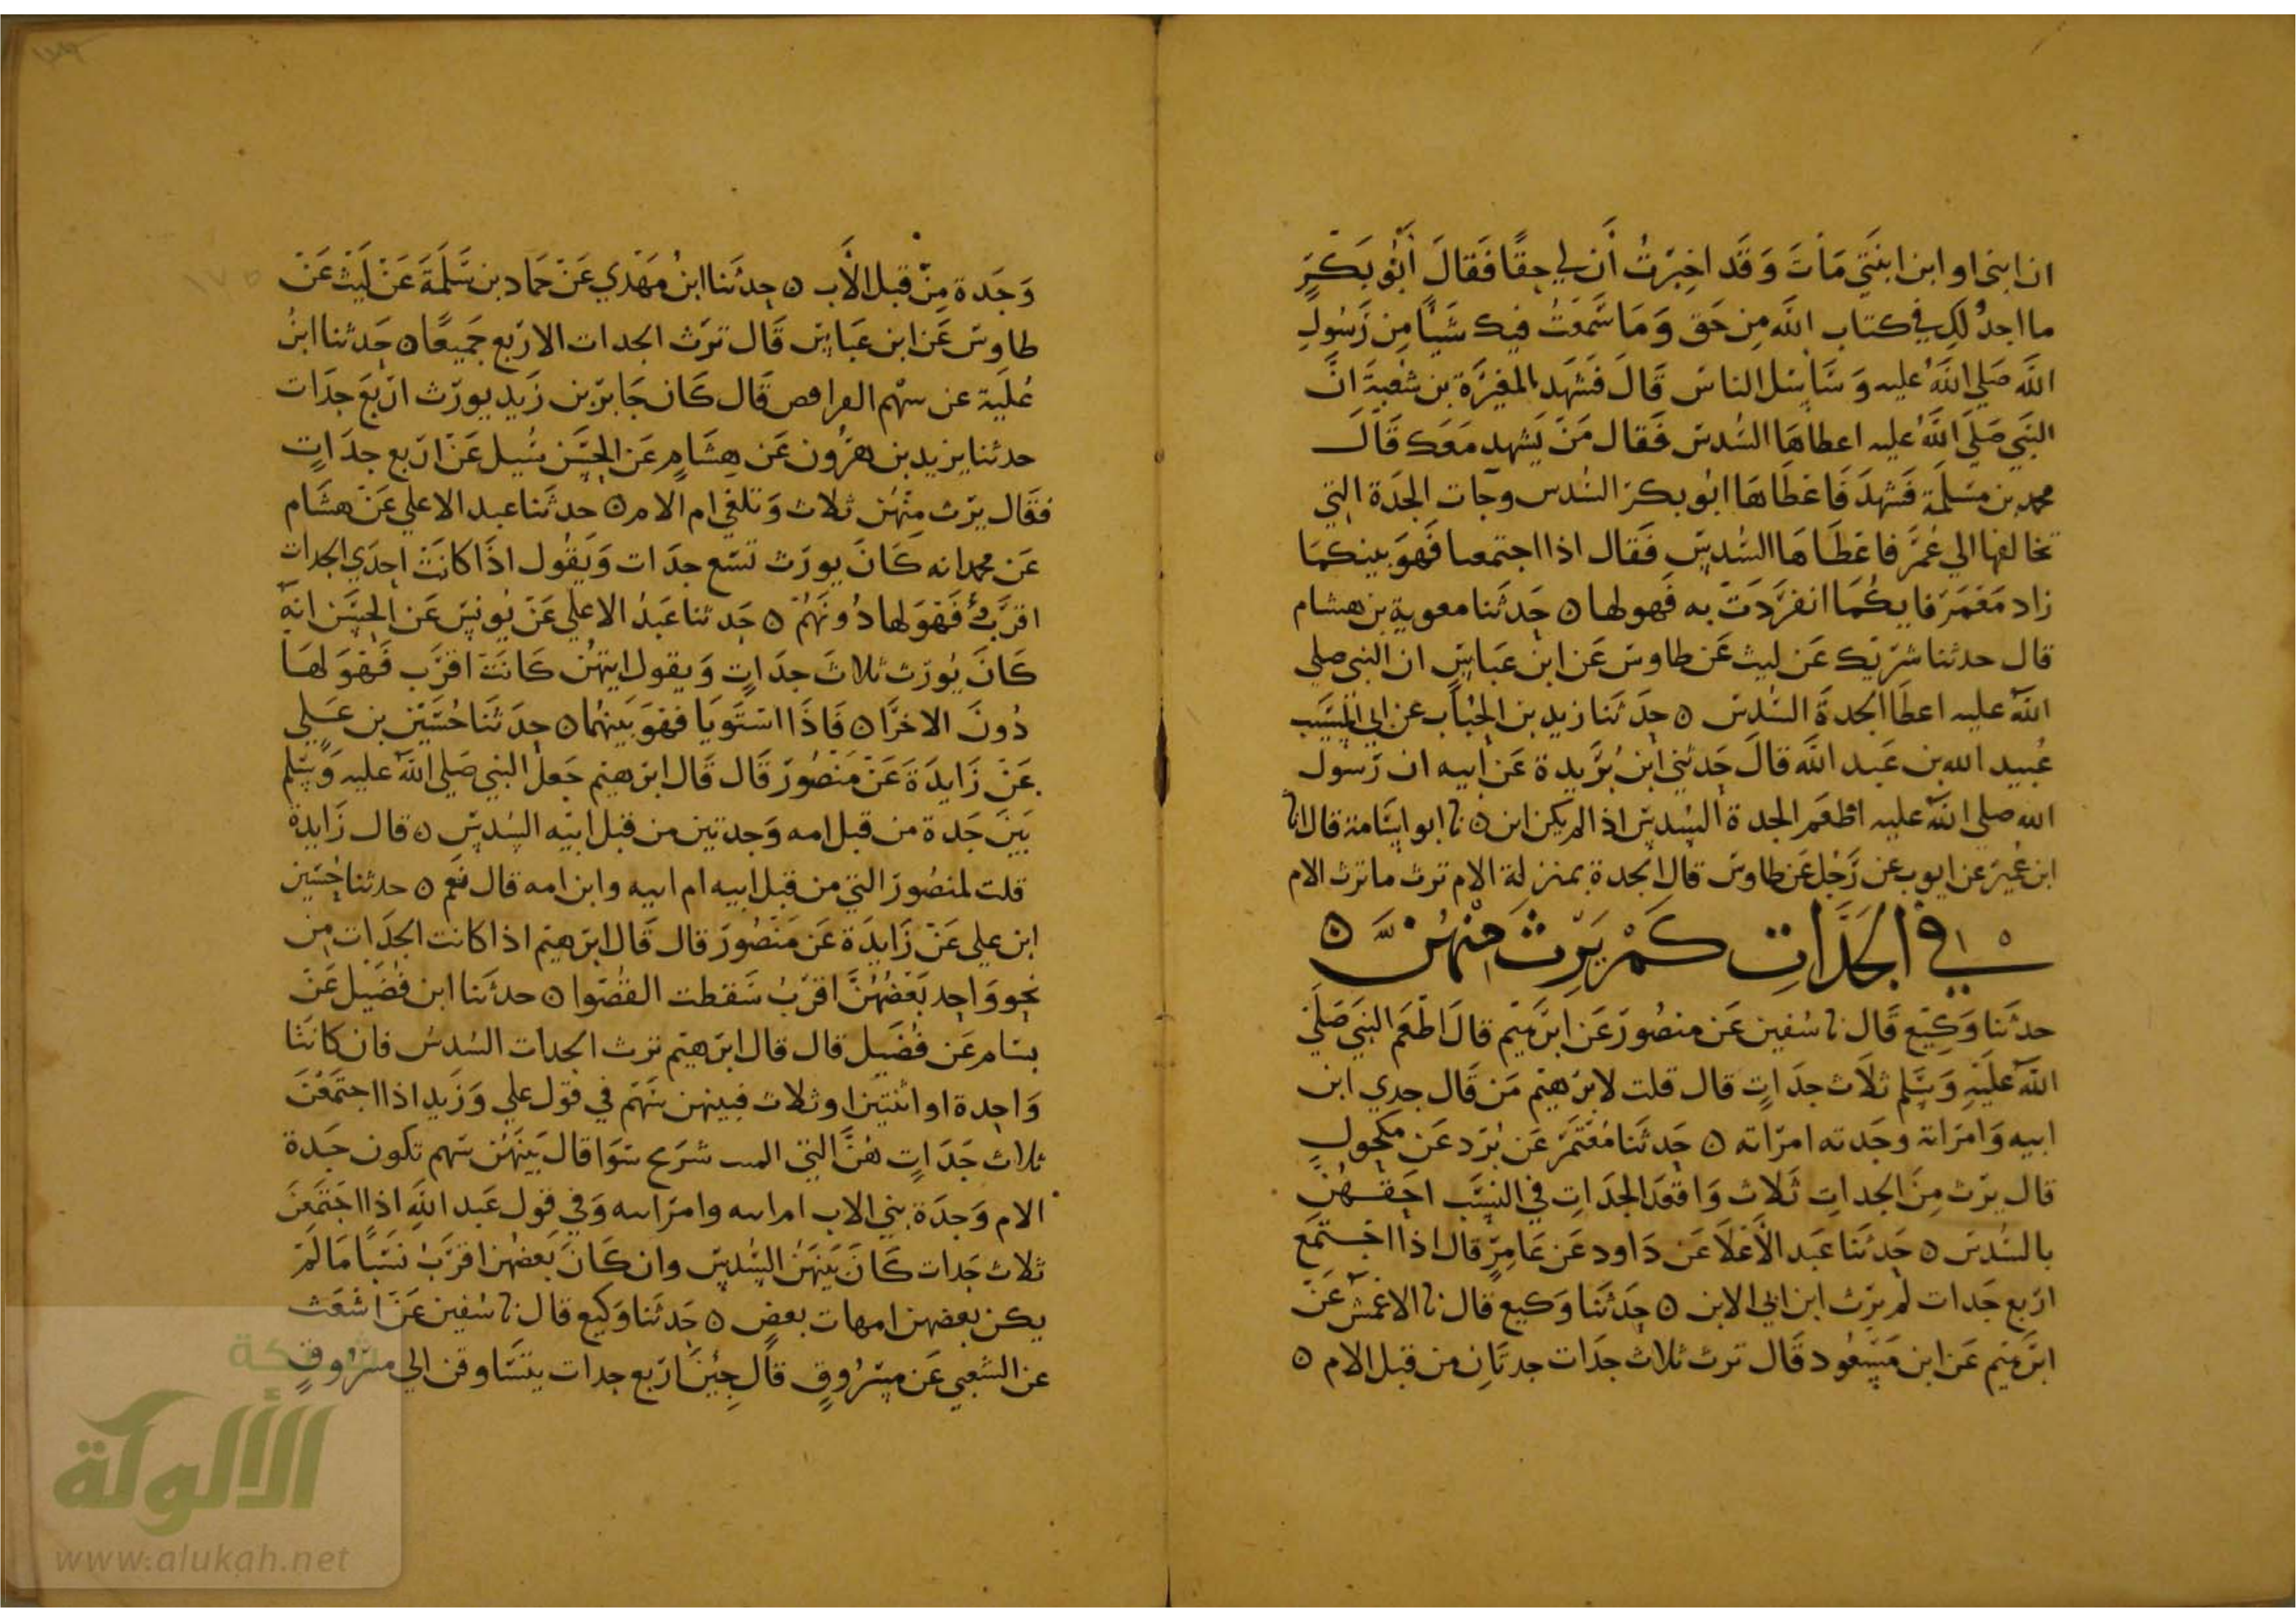 ان ابني او ابن ابنتي مات وقد اخبرت أن لي حقا فقال أبو بكر
ما اجد لك في كتاب الله من حق وما سمعت فيك شيأ من رسول
الله صلي الله عليه وسأسل الناس قال فشهد المغيرة بن شعبة ان
النبي صلي الله عليه اعطاها السدس فقال من يشهد معك قال
محمد بن مسلمة فشهد فاعطاها ابو بكر السدس وجات الجدة التي
تخالفها الي عمر فاعطاها السدس فقال اذا اجتمعما فهو بينكما
زاد معمر فايكما انفردت به فهو لها ٥ حدثنا معوية بن هشام
قال حدثنا شريك عن ليث عن طاوس عن ابن عباس ان النبي صلي
الله عليه اعطا الجدة السدس ٥ حدثنا زيد بن الحباب عن ابي المسيب
عبيد الله بن عبد الله قال حدثني ابن بريدة عن ابيه ان رسول
الله صلي الله عليه اطعم الجدة السدس اذا لم يكن ابن ٥ نا ابو اسامة قال نا
ابن عمير عن ايوب عن رجل عن طاوس قال الجدة بمنزلة الام ترث ما ترث الام
في الجدات كم يرث منهن ٥
حدثنا وكيع قال نا سفين عن منصور عن ابرهيم قال اطعم النبي صلي
الله عليه وسلم ثلاث جدات قال قلت لابرهيم من قال جدي ابن
ابيه وامراتة وجدته امراته ٥ حدثنا معتمر عن برد عن مكحول
قال يرث من الجدات ثلاث واقعد الجدات في النسب احقهن
بالسدس ٥ حدثنا عبد الأعلا عن داود عن عامر قال اذا اجتمع
اربع جدات لم يرث ابن ابي الابن ٥ حدثنا وكيع قال نا الاعمش عن
ابرهيم عن ابن مسعود قال ترث ثلاث جدات جدتان من قبل الام ٥
وجدة من قبل الأب ٥ حدثنا ابن مهدي عن حماد بن سلمة عن ليث عن
طاوس عن ابن عباس قال ترث الجدات الاربع جميعا ٥ حدثنا ابن
علية عن سهم الفرافص قال كان جابر بن زيد يورث اربع جدات
حدثنا يزيد بن هرون عن هشام عن الحسن سيل عن اربع جدات
فقال يرث منهن ثلاث وتلغي ام الام ٥ حدثنا عبد الاعلي عن هشام
عن محمد انه كان يورث تسع جدات ويقول اذا كانت احدي الجدات
اقرب فهو لها دونهم ٥ حدثنا عبد الاعلي عن يونس عن الحسن انه
كان يورث ثلاث جدات ويقول ايتهن كانت اقرب فهو لها
دون الاخرا ٥ فاذا استويا فهو بينهما ٥ حدثنا حسين بن علي
عن زايدة عن منصور قال قال ابرهيم جعل النبي صلي الله عليه وسلم
بين جدة من قبل امه وجدتين من قبل ابيه السدس ٥ قال زايدة
قلت لمنصور التي من قبل ابيه ام ابيه وابن امه قال نعم ٥ حدثنا حسين
ابن علي عن زايدة عن منصور قال قال ابرهيم اذا كانت الجدات من
نحو واحد بعضهن اقرب سقطت القصوا ٥ حدثنا ابن فضيل عن
بسام عن فضيل قال قال ابرهيم ترث الجدات السدس فان كانتا
واحدة او اثنتين او ثلاث فبينهن سهم في قول علي وزيد اذا اجتمعن
ثلاث جدات هن التي شرع سوا قال بينهن سهم تكون جدة
الام وجدة بني الاب وفي قول عبد الله اذا اجتمعن
ثلاث جدات كان بينهن السدس وان كان بعضهن اقرب نسبا ما لم
يكن بعضهن امهات بعض ٥ حدثنا وكيع قال نا سفين عن اشعث
عن الشعبي عن مسروق قال جئن اربع جدات يتساوقن الي مسروق
شبكة
الألوكة
www.alukah.net